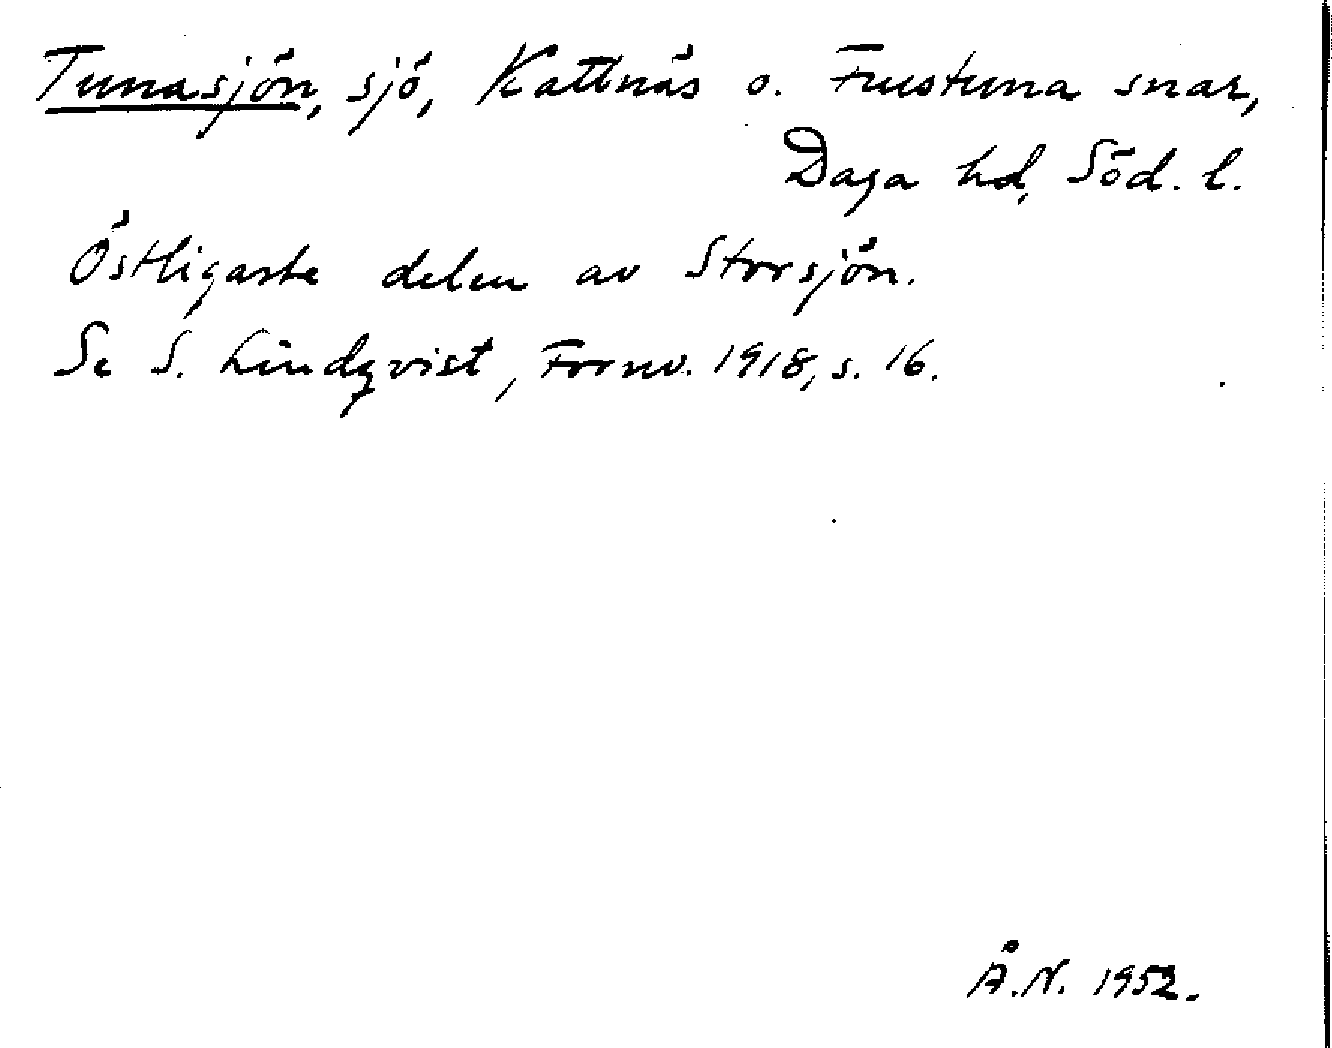 Tunasjön, sjö, Kattnäs o. Frustuna snar,
Daga hd, Söd. l.
Östligaste delen av Storsjön.
Se S. Lindqvist, Fornv. 1918, s. 16.
Å.N. 1952.